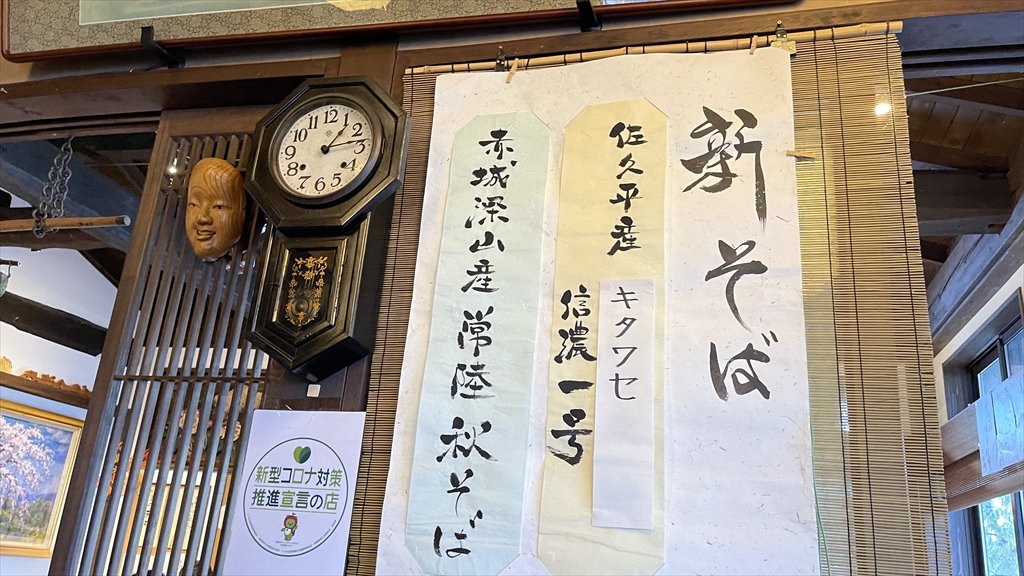 新そば
佐久平産
キタワセ
信濃一号
赤城深山産 常陸 秋そば
12
1
2
3
4
5
6
7
8
9
10
11
新型コロナ対策
推進宣言の店